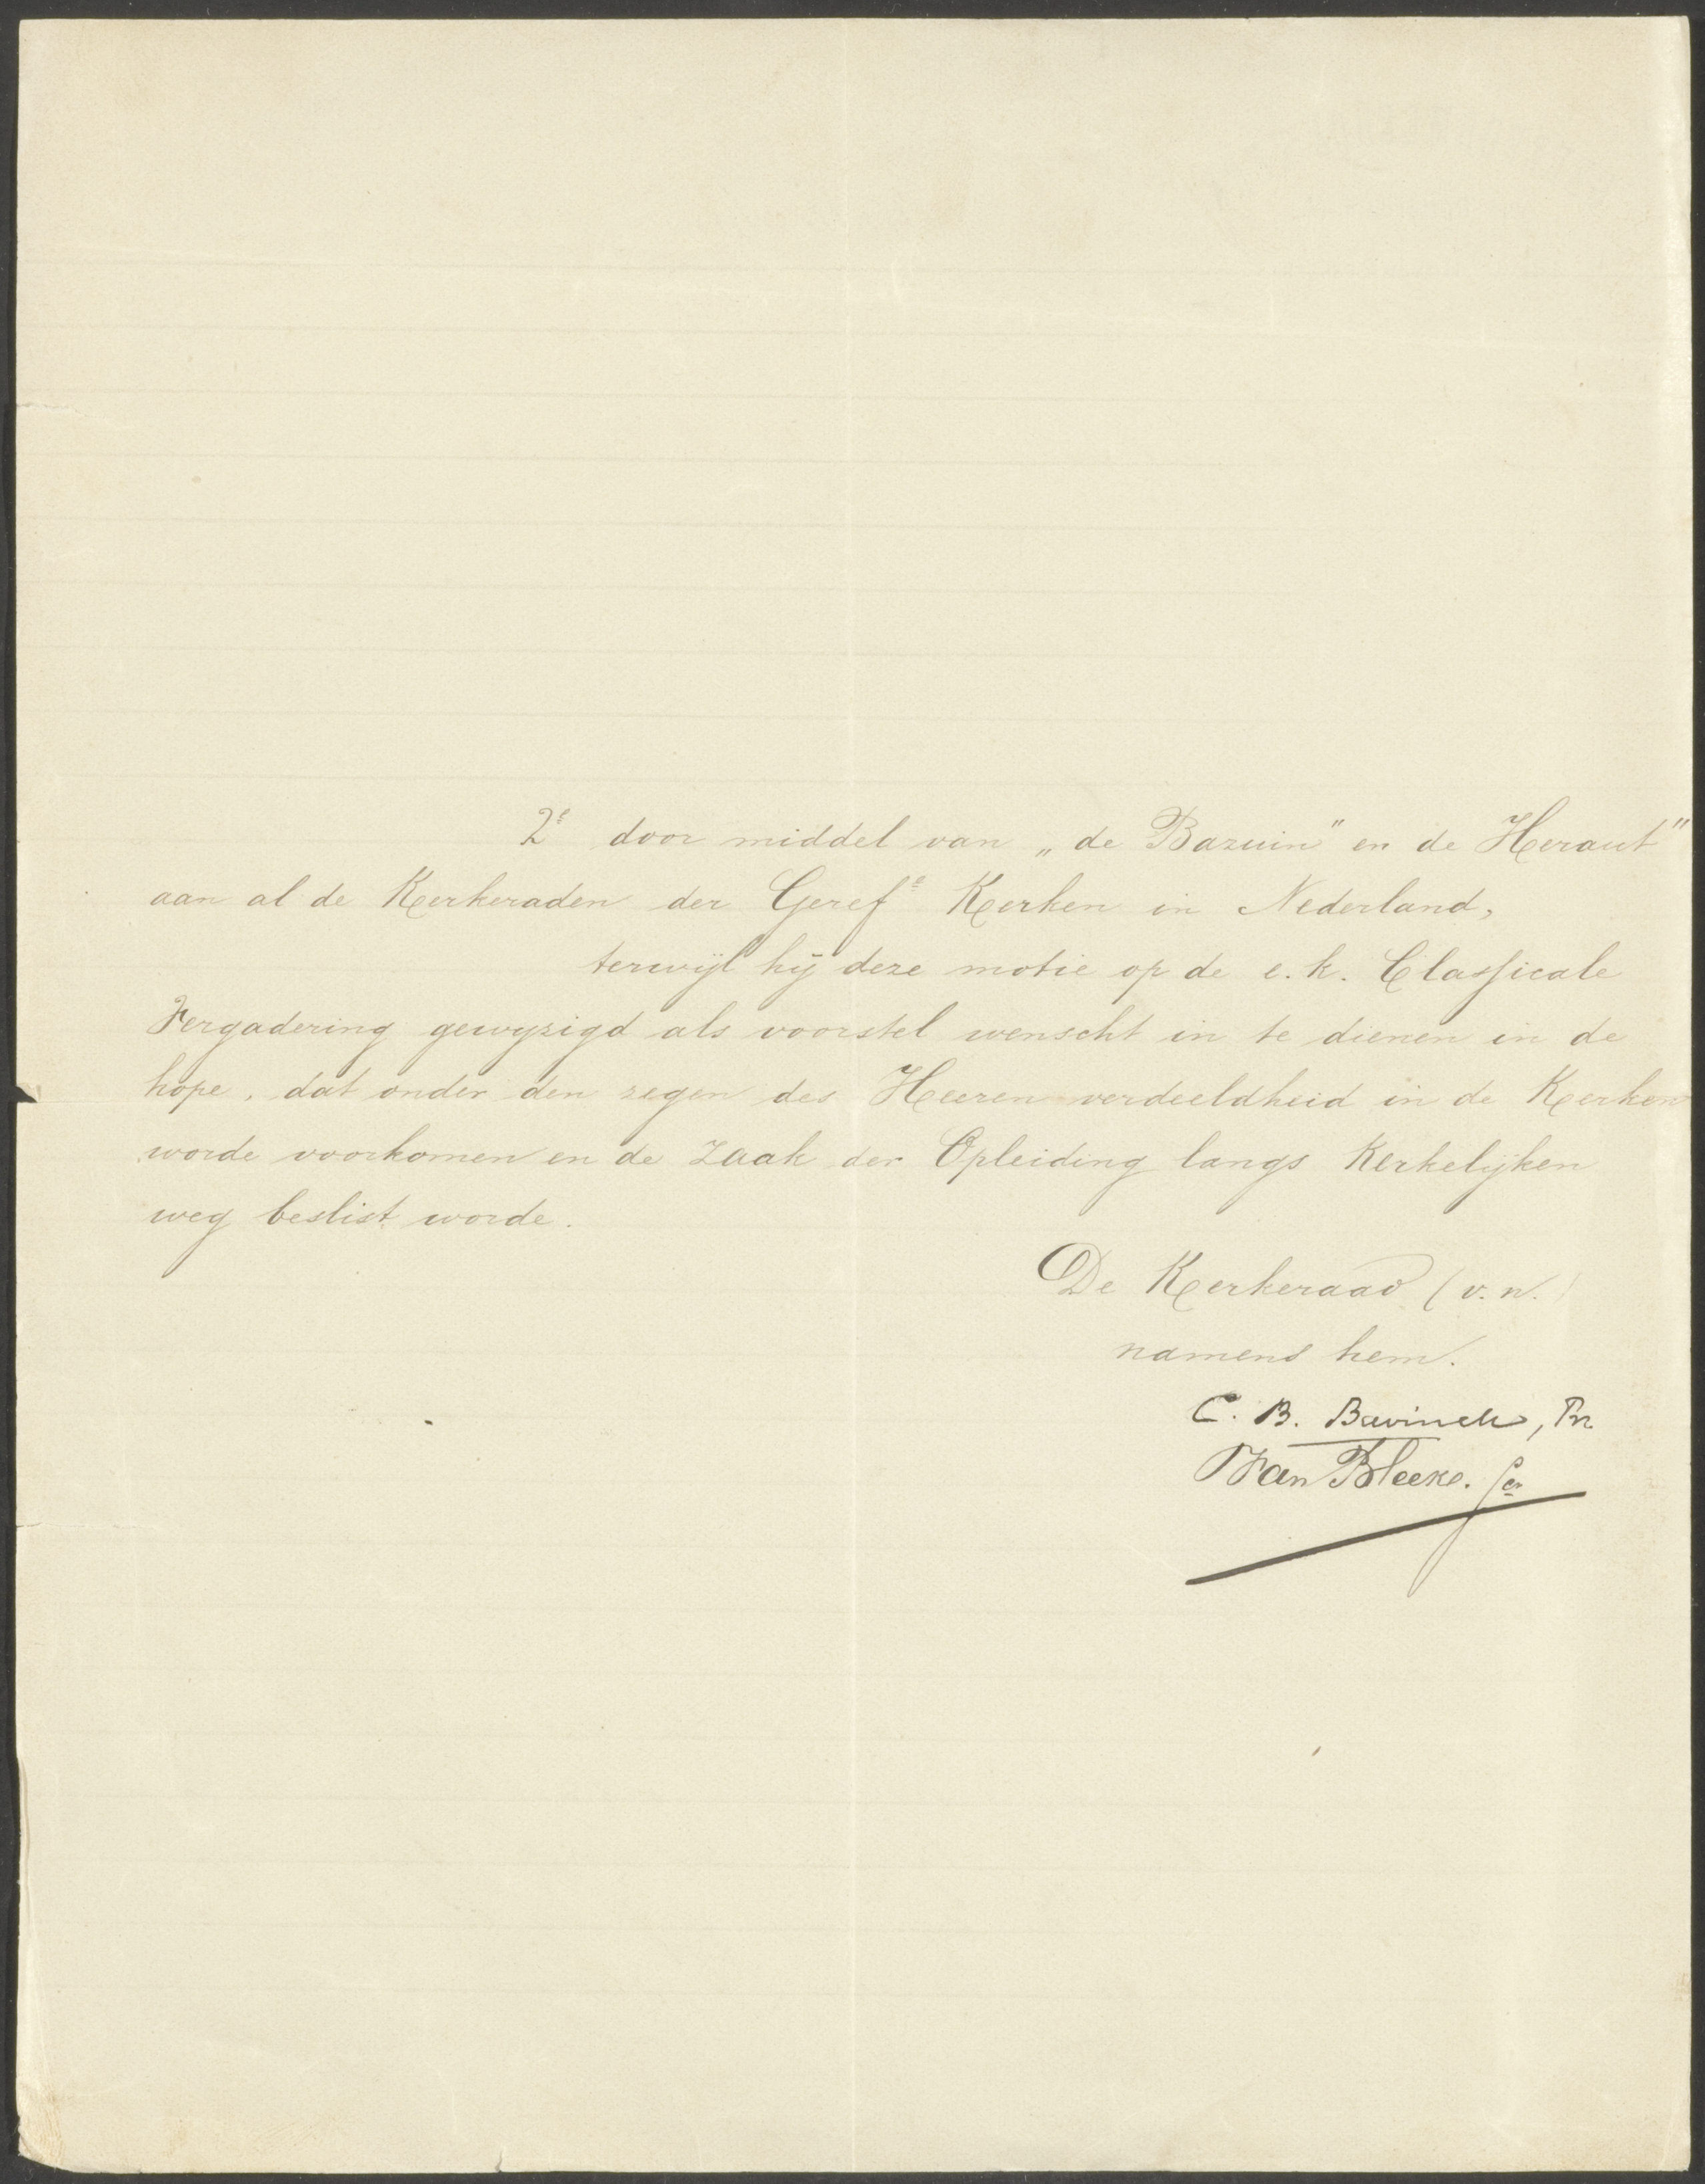 2e door middel van „de Bazuin" en de Heraut"
aan al de Kerkeraden der Gerefe Kerken in Nederland,
terwijl hij deze motie op de e.k. Classicale
Vergadering gewyzigd als voorstel wenscht in te dienen in de
hope, dat onder den zegen des Heeren verdeeldheid in de Kerken
worde voorkomen en de zaak der Opleiding langs Kerkelijken
weg beslist worde.
De Kerkeraad (v.n.)
namens hem.
C. B. Bavinck, Pr.
J Van Bleeke. Scr